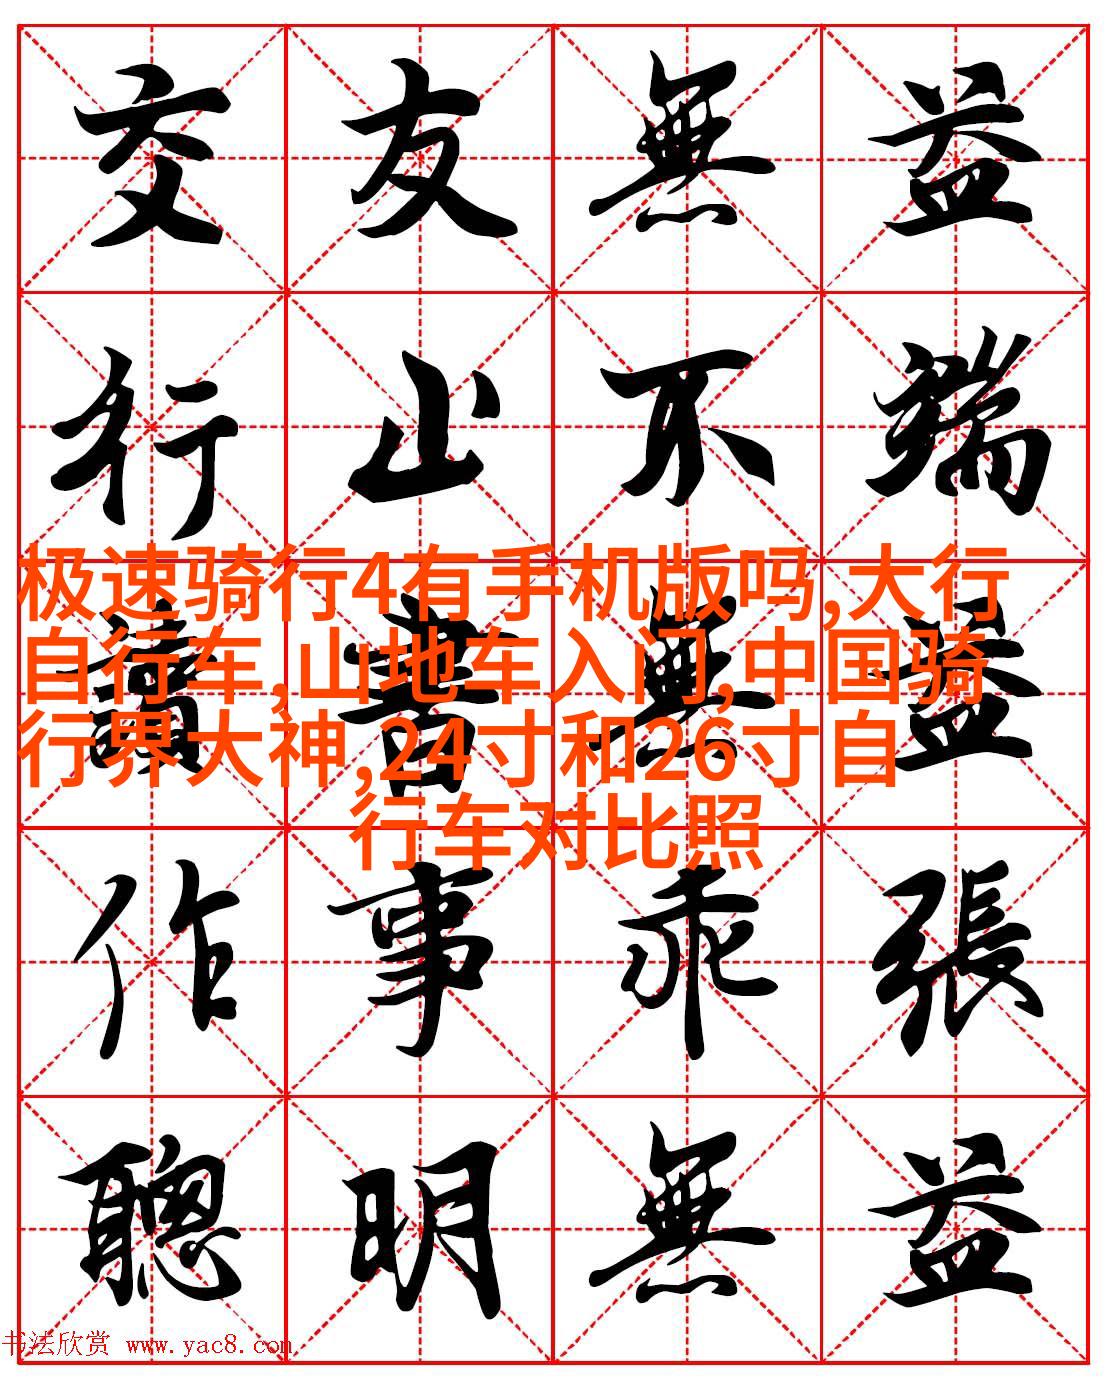 交友無益
行止不端
極速骑行4有手机版吗,大行
自行车,山地车入门,中国骑
行界大神,24寸和26寸自
行车对比照
讀書無益
作事乖張
聰明無益
书法欣赏 www.yac8.com